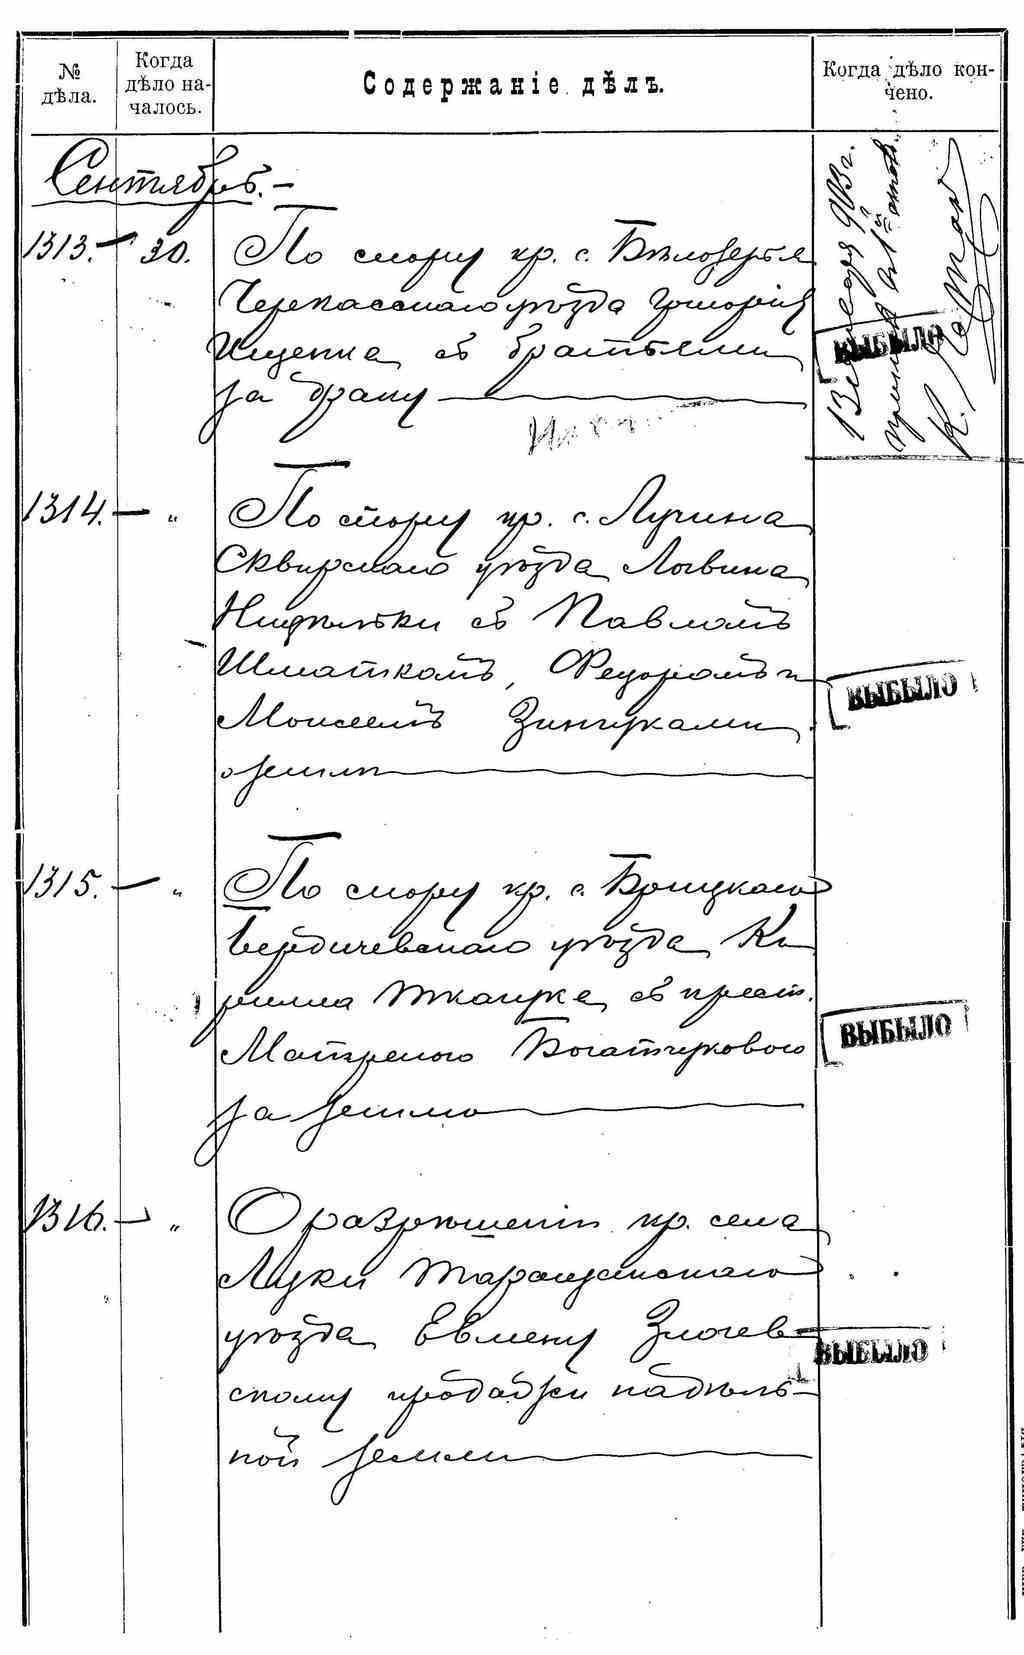 №
дѣла.
Когда
дѣло на-
чалось.
Содержаніе дѣлъ.
Когда дѣло кон-
чено.
Сентябрь.—
1313.— 30. По спору кр. с. Бѣлозерья
Черкасскаго уѣзда Григорія
Ищенка съ братьями
за
ВЫБЫЛО
1314.— „ По спору кр. с. Лучина
Сквирскаго уѣзда Логвина
съ Павломъ
Шматкомъ, Федоромъ и
Моисеемъ Зинчуками
о землѣ
ВЫБЫЛО
1315.— „ По спору кр. с. Брицкаго
Бердичевскаго уѣзда Ки
рилла Ткачука съ крест.
Матреною Богатчуковою
за землю
ВЫБЫЛО
1316.— „ О разрѣшеніи кр. села
Луки Таращанскаго
уѣзда Евмену Злочев-
скому продажи надѣль-
ной земли
ВЫБЫЛО